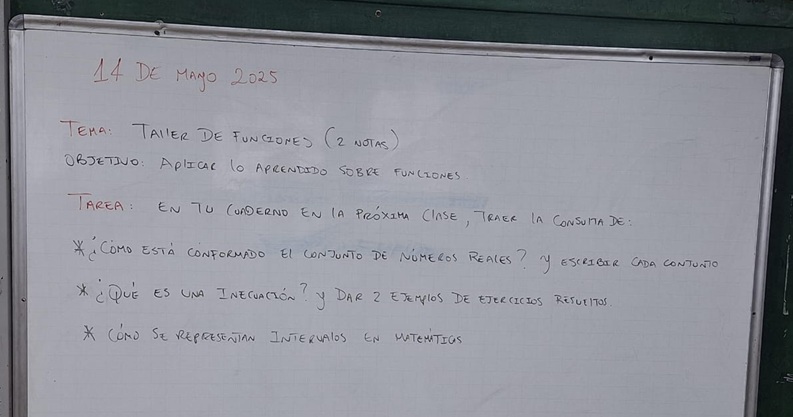 14 DE MAYO 2025
TEMA: TALLER DE FUNCIONES (2 NOTAS)
OBJETIVO: APLICAR lo APRENDIDO SOBRE FUNCIONES
TAREA: EN TU CUADERNO EN LA PRÓXIMA CLASE, TRAER LA CONSULTA DE:
* ¿CÓMO ESTÁ CONFORMADO El CONJUNTO DE NÚMEROS REALES? y ESCRIBIR CADA CONJUNTO
* ¿QUÉ ES UNA INECUACIÓN? y DAR 2 EJEMPLOS DE EJERCICIOS RESUELTOS.
* CÓMO SE REPRESENTAN INTERVALOS EN MATEMÁTICAS